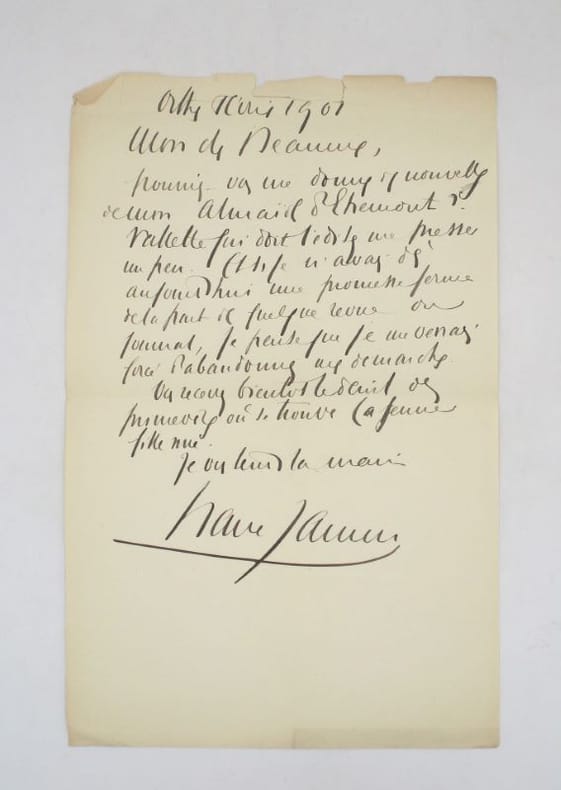 Orthez 1901
Mon ch Beaunier,
pourriez-vs me donner des nouvelles
de mon Almaïde d'Etremont ?
Vallette qui doit l'éditer me presse
un peu. Et si je n'avais dès
aujourd'hui une promesse ferme
de la part de quelque revue ou
journal, je pense que je me verrais
forcé d'abandonner mes démarches.
Vs recevrez bientôt le deuil des
primevères où se trouve la jeune
fille nue.
Je vs tends la main
Francis Jammes